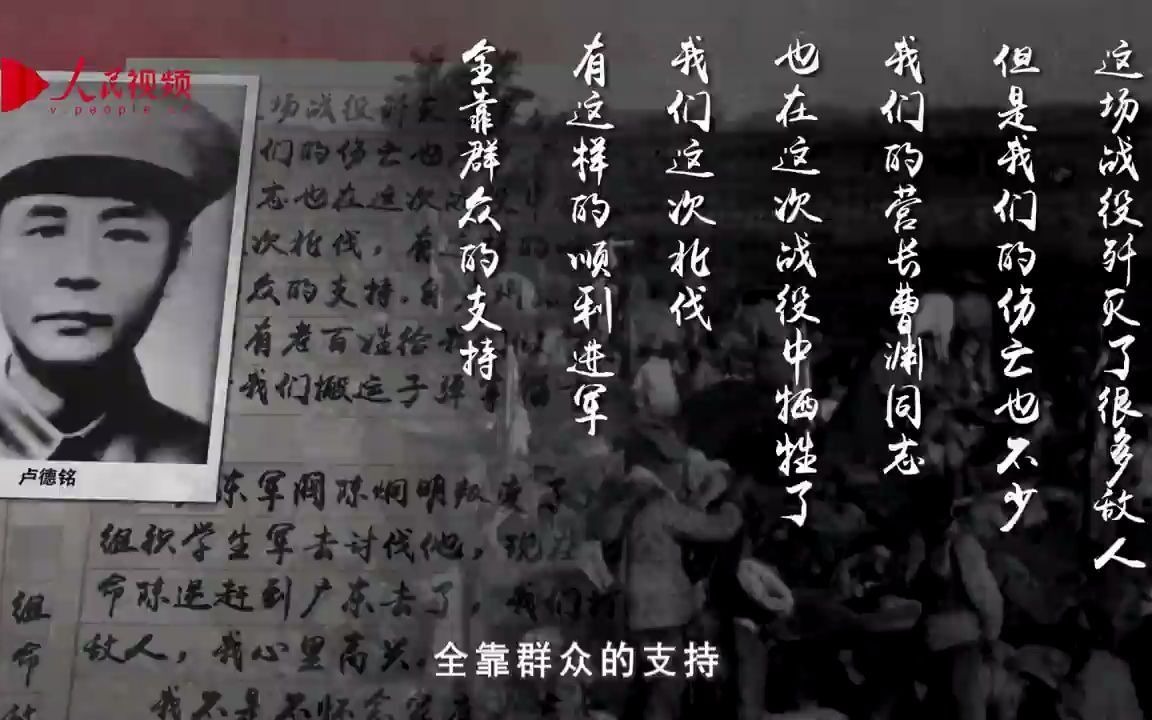 人民视频
v.people.cn
这场战役歼灭了很多敌人
但是我们的伤亡也不少
我们的营长曹渊同志
也在这次战役中牺牲了
我们这次北伐
有这样的顺利进军
全靠群众的支持
场战役歼灭
们的伤亡也
志也在这次
次北伐，有
众的支持。自
有老百姓给
我们搬运子弹
卢德铭
东军阀陈炯明叛变了
组织学生军去讨伐他，现在
命陈逆赶到广东去了，我们打
敌人，我心里高兴
我不是不怀念家
组
命
全靠群众的支持